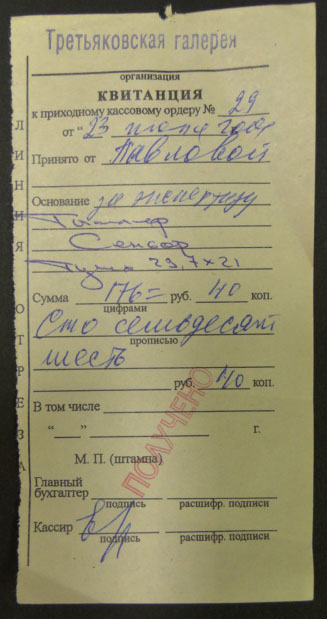 Третьяковская галерея
организация
КВИТАНЦИЯ
к приходному кассовому ордеру № 29
от "23
Принято от Павловой
Основание за экспертизу
Сенсор
Тушь 23,7 х 21
Сумма 176= руб. 40 коп.
цифрами
Сто семьдесят
прописью
шесть
руб. 40 коп.
В том числе
" " г.
М. П. (штампа)
ПОЛУЧЕНО
Главный
бухгалтер
подпись расшифр. подписи
Кассир
подпись расшифр. подписи
ЛИНИЯ ОТРЕЗА